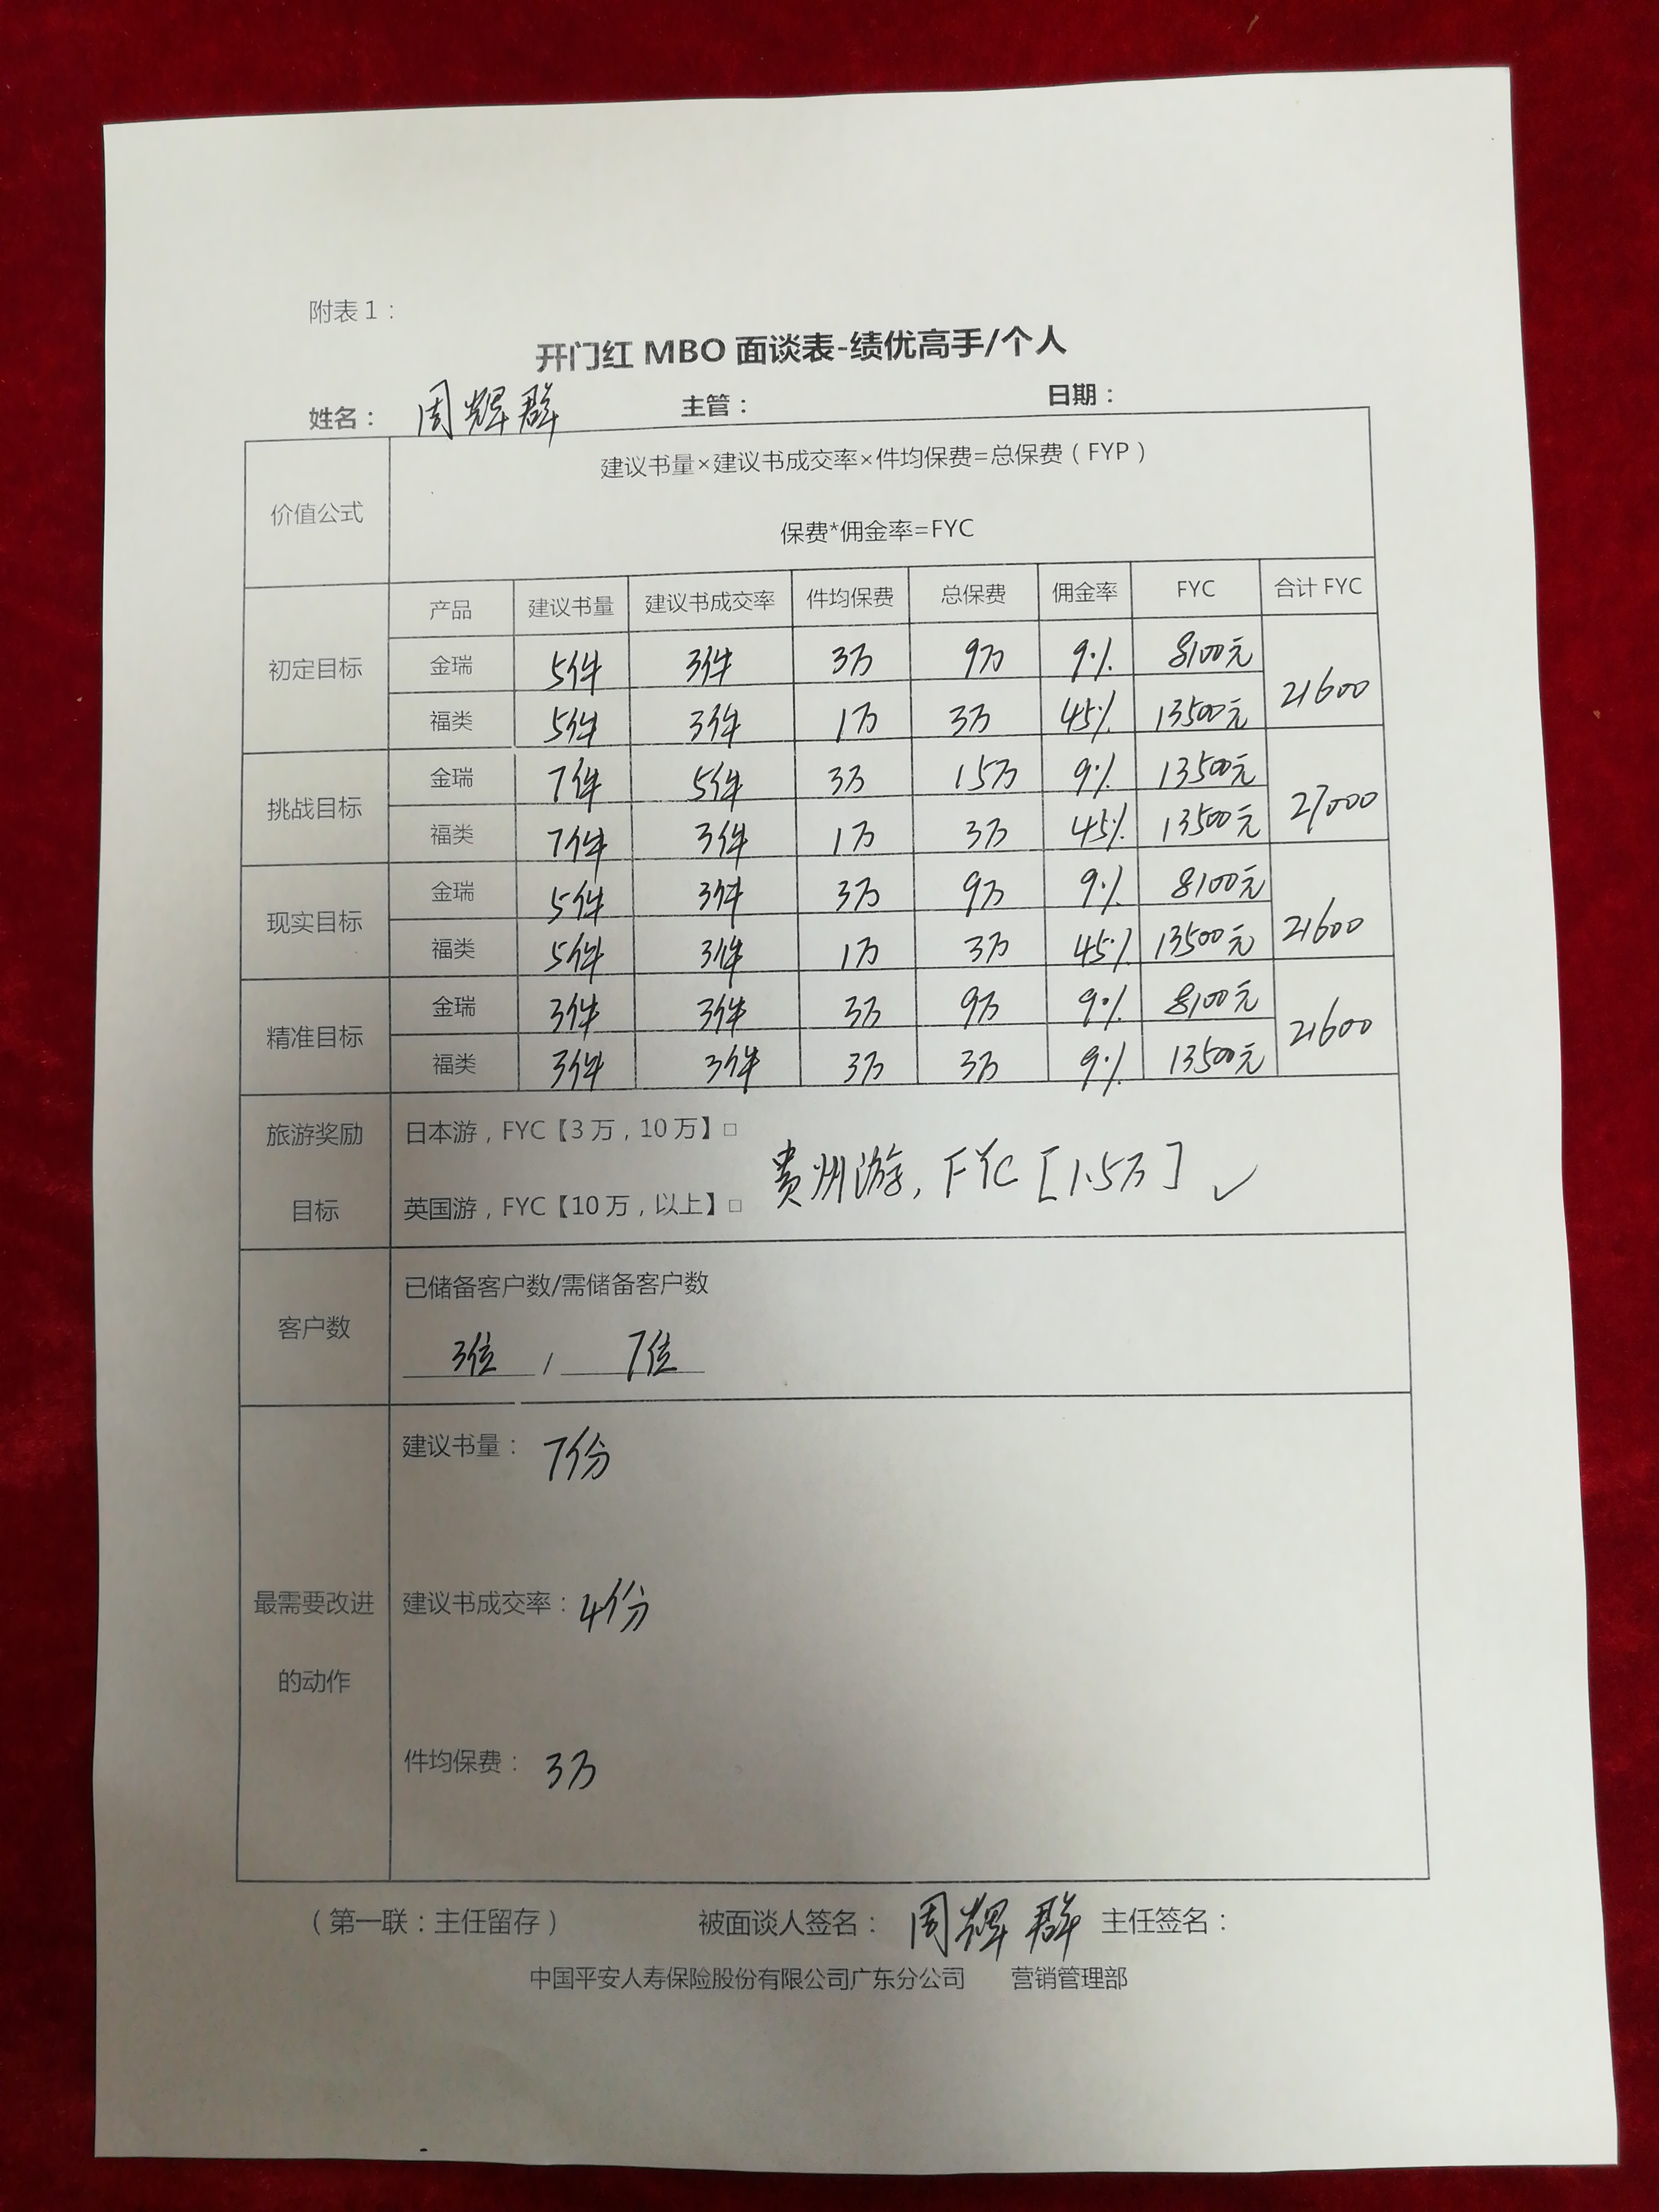 附表1：
开门红 MBO 面谈表-绩优高手/个人
姓名： 周辉群 主管： 日期：
价值公式
建议书量×建议书成交率×件均保费=总保费（FYP）
保费*佣金率=FYC
产品 建议书量 建议书成交率 件均保费 总保费 佣金率 FYC 合计 FYC
初定目标
金瑞 5件 3件 3万 9万 9% 8100元
福类 5件 3件 1万 3万 45% 13500元
21600
挑战目标
金瑞 7件 5件 3万 15万 9% 13500元
福类 7件 3件 1万 3万 45% 13500元
27000
现实目标
金瑞 5件 3件 3万 9万 9% 8100元
福类 5件 3件 1万 3万 45% 13500元
21600
精准目标
金瑞 3件 3件 3万 9万 9% 8100元
福类 3件 3件 3万 3万 9% 13500元
21600
旅游奖励
目标
日本游，FYC【3万，10万】□
英国游，FYC【10万，以上】□
贵州游，FYC [1.5万] ✓
客户数
已储备客户数/需储备客户数
3位 / 7位
最需要改进
的动作
建议书量： 7份
建议书成交率：4份
件均保费： 3万
（第一联：主任留存） 被面谈人签名： 周辉群 主任签名：
中国平安人寿保险股份有限公司广东分公司 营销管理部